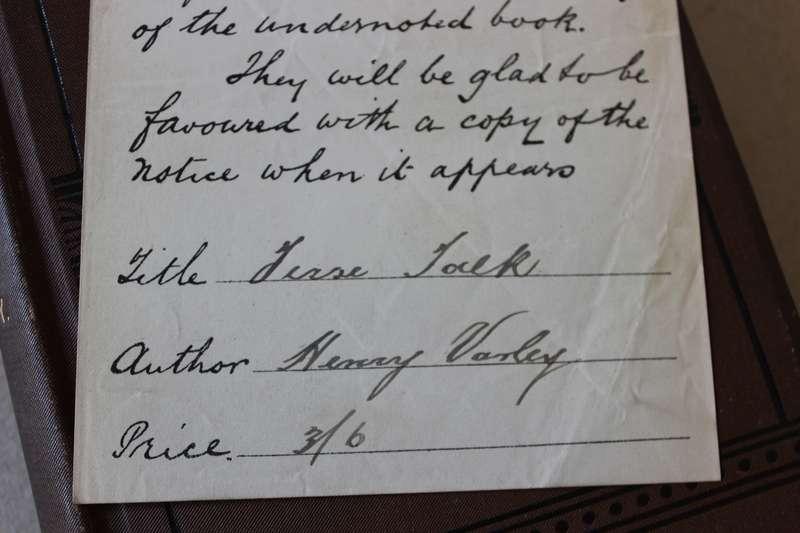 of the undernoted book.
They will be glad to be
favoured with a copy of the
notice when it appears
Title Terse Talk
Author Henry Varley
Price. 3/6